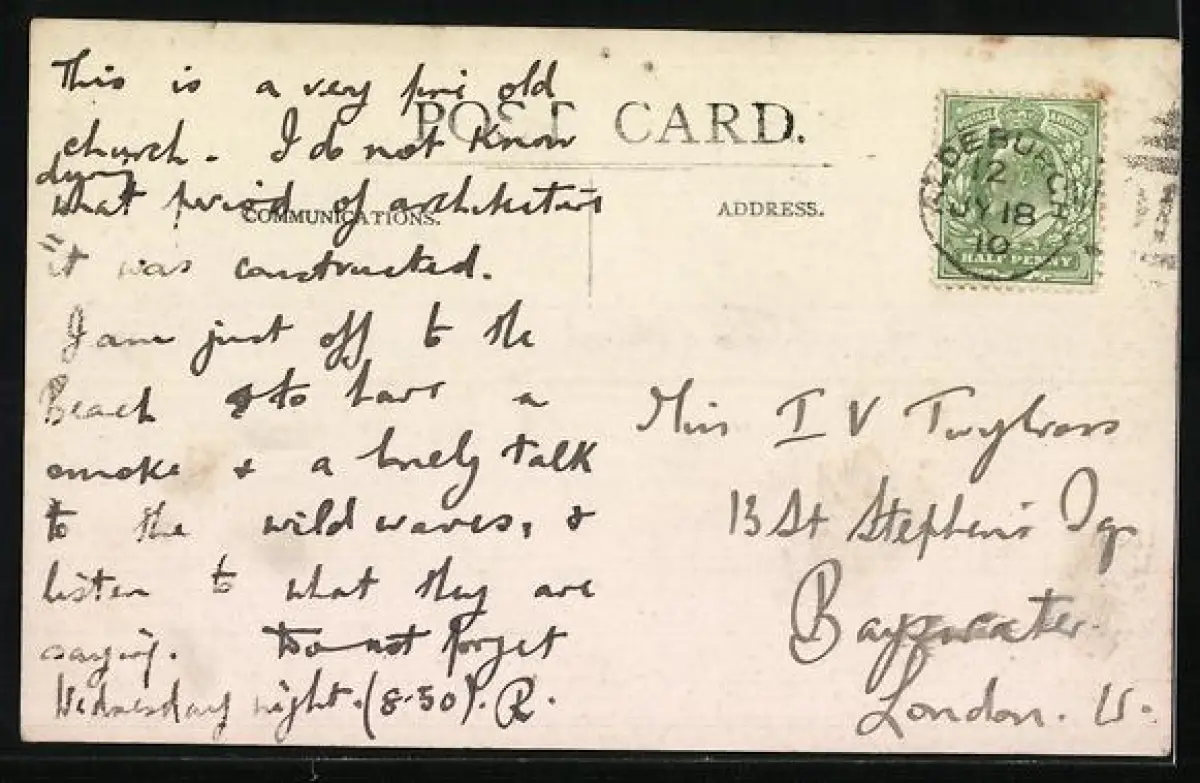 This is a very fine old
church. I do not know
during
what period of architecture
it was constructed.
I am just off to the
Beach & to have a
smoke & a lonely talk
to the wild waves, &
listen to what they are
saying. Do not forget
Wednesday night. (8-30). R.
POST CARD.
COMMUNICATIONS.
ADDRESS.
ALDEBURGH
12
JY 18
10
HALF PENNY
Miss I V Twycross
13 St Stephen's Sqr
Bayswater.
London. W.